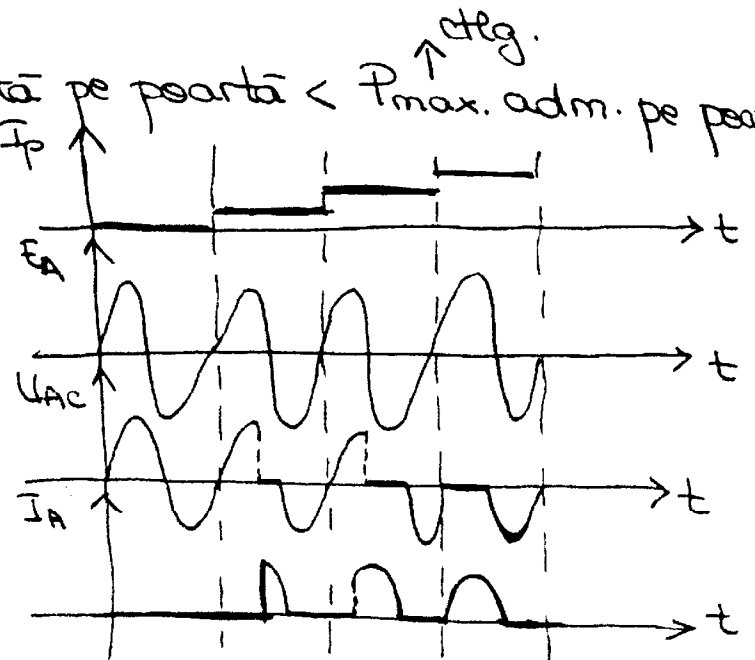 ctlg.
tă pe poartă < Pmax. adm. pe poa
Ip
t
EA
t
UAC
t
IA
t